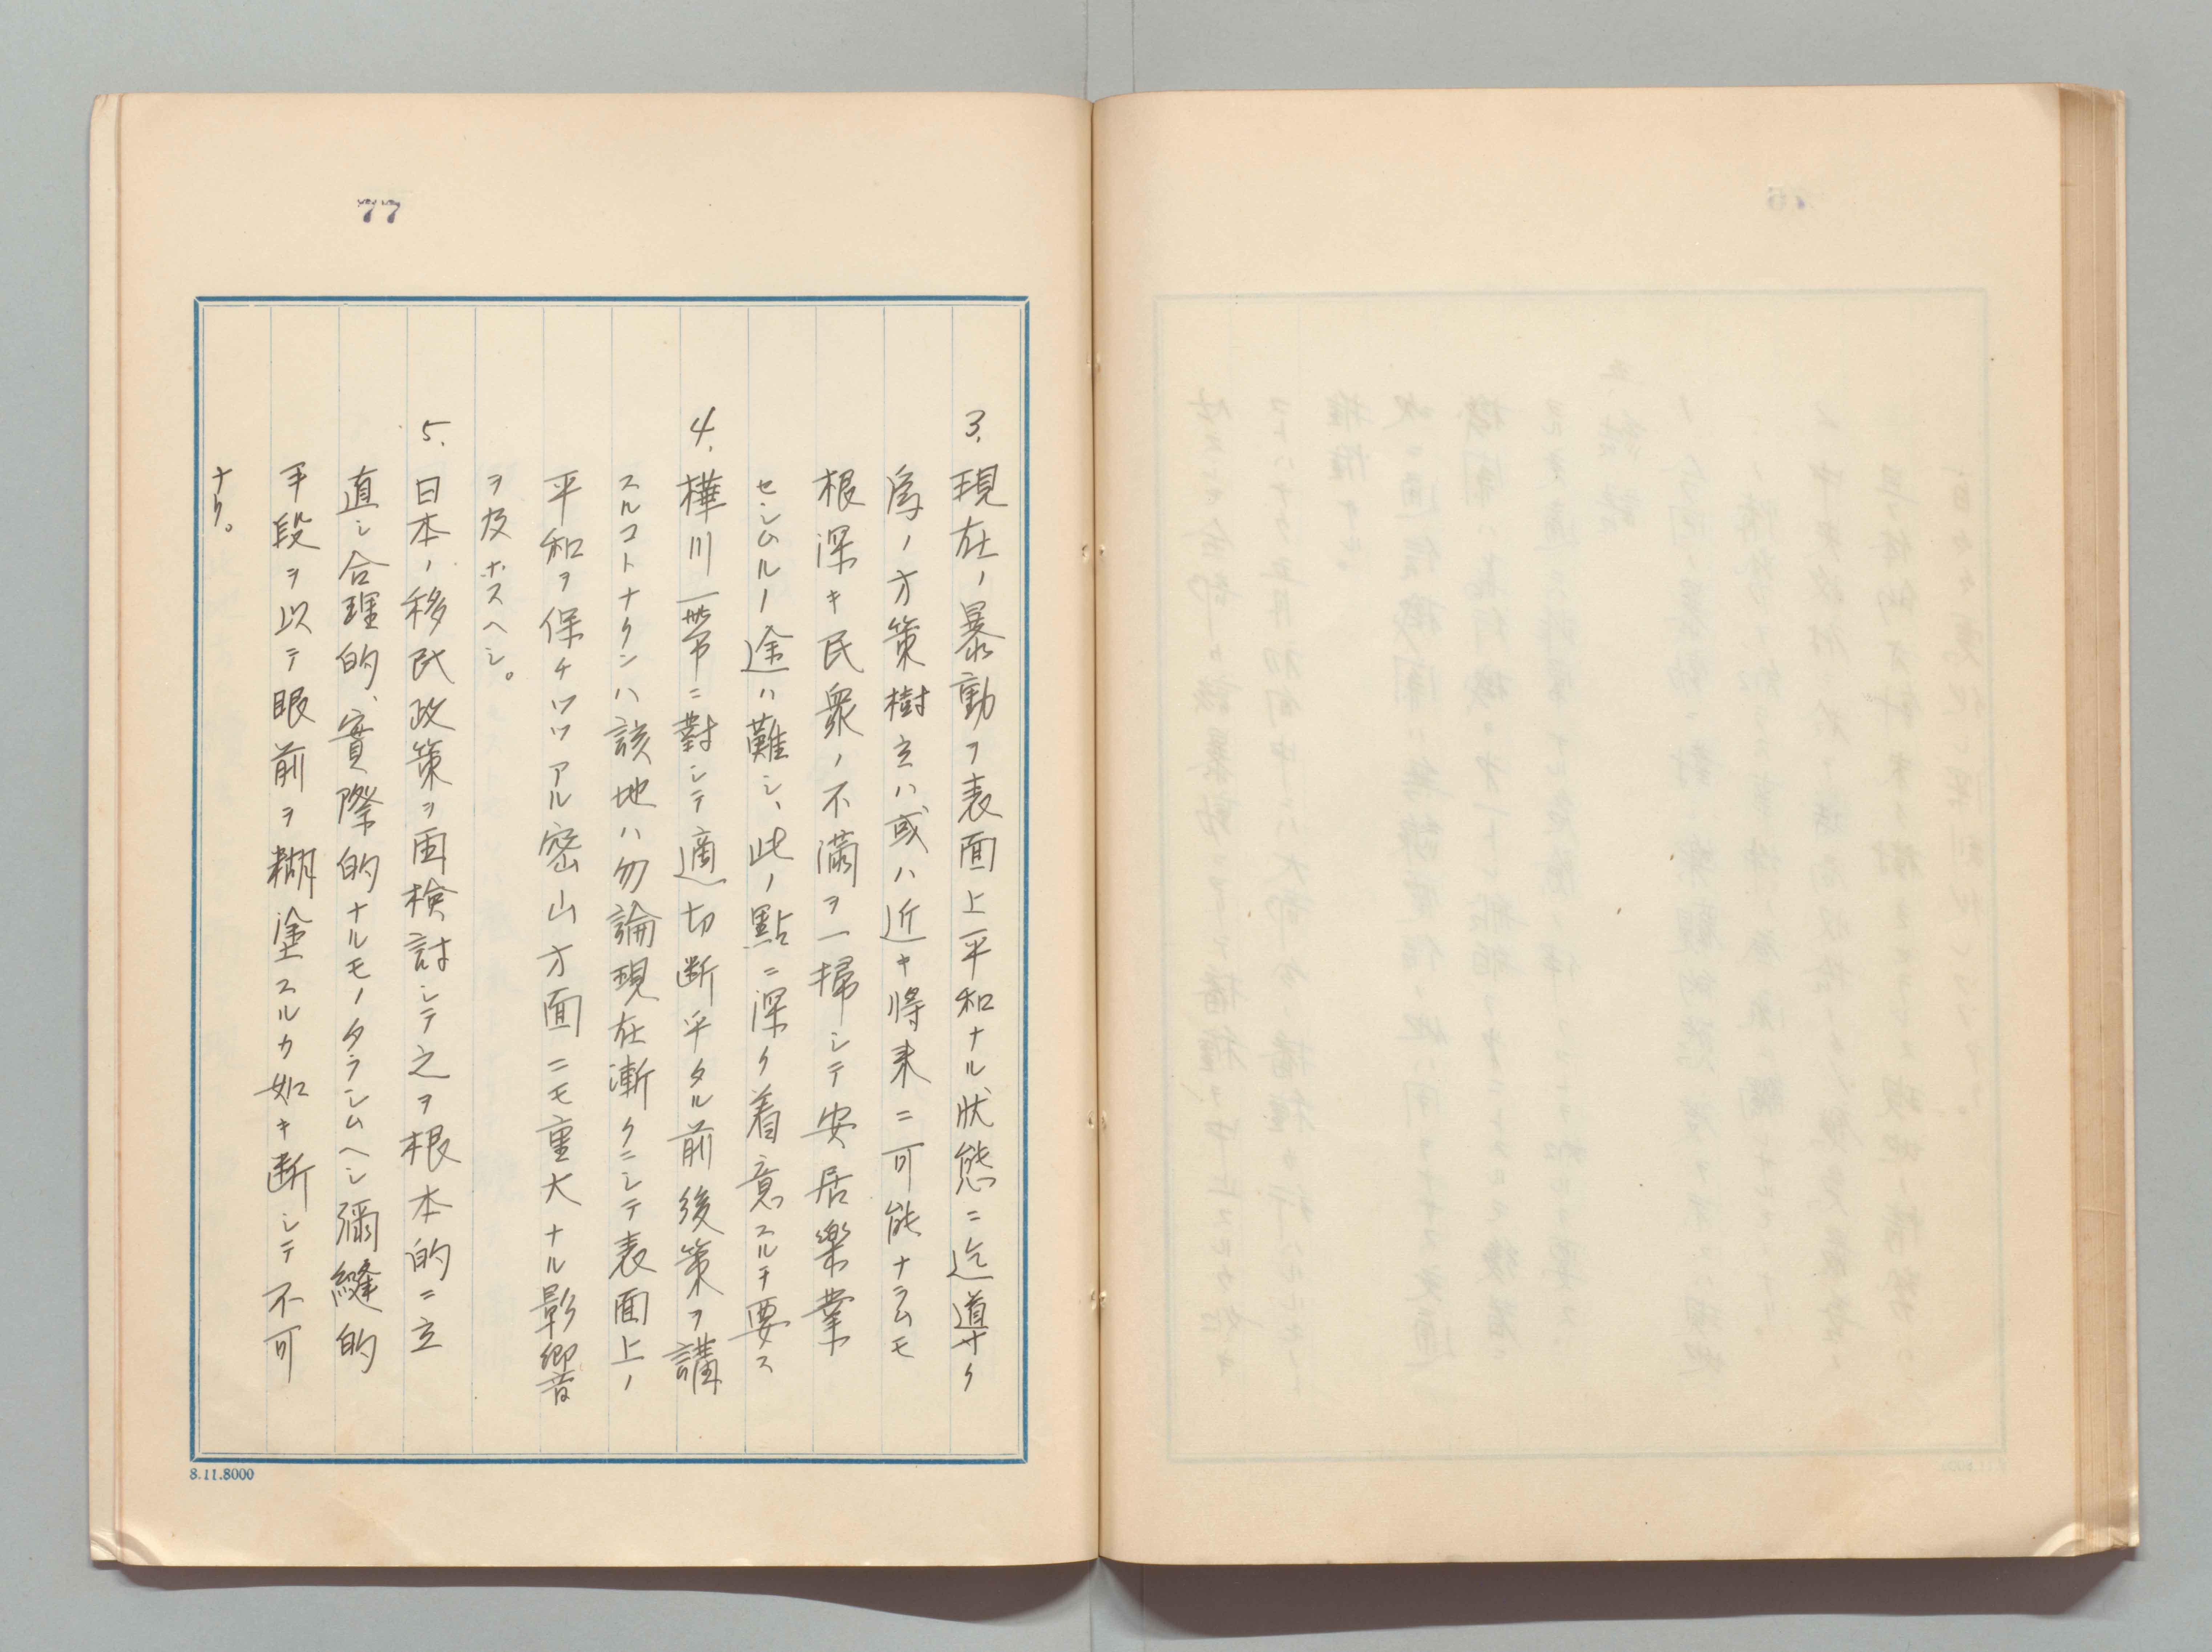 77
3. 現在ノ暴動ヲ表面上平和ナル状態ニ迄導ク
為ノ方策樹立ハ或ハ近キ将来ニ可能ナラムモ
根深キ民衆ノ不満ヲ一掃シテ安居樂業
セシムルノ途ハ難シ、此ノ點ニ深ク着意スルヲ要ス
4. 樺川一帯ニ對シテ適切断乎タル前後策ヲ講
スルコトナクンハ該地ハ勿論現在漸クニシテ表面上ノ
平和ヲ保チツツアル密山方面ニモ重大ナル影響
ヲ及ホスヘシ。
5. 日本ノ移民政策ヲ再検討シテ之ヲ根本的ニ立
直シ合理的、實際的ナルモノタラシムヘシ彌縫的
手段ヲ以テ眼前ヲ糊塗スルカ如キ断シテ不可
ナリ。
8.11.8000